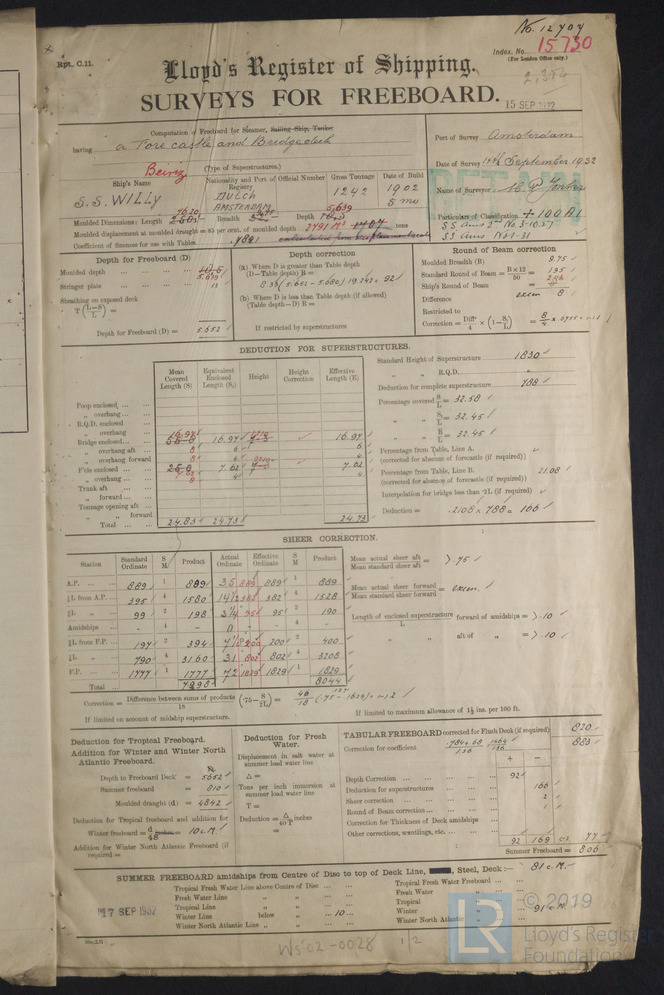 No. 12707
Rpt. C.11.
Index. No. 15730
(For London Office only.)
Lloyd's Register of Shipping.
2,354
SURVEYS FOR FREEBOARD.
15 SEP 1932
Computation of Freeboard for Steamer, Sailing Ship, Tanker
having a Fore castle and Bridge deck
Port of Survey Amsterdam
(Type of Superstructures.)
Date of Survey 14th September 1932
Being
Ship's Name
Nationality and Port of Registry
Official Number
Gross Tonnage
Date of Build
S.S. WILLY
DUTCH
AMSTERDAM
1242
1902
5 mo
Name of Surveyor
RETAIN
Moulded Dimensions: Length
Breadth
Depth
5,639
Particulars of Classification + 100 A1
Moulded displacement at moulded draught = 85 per cent. of moulded depth 2791 M³ tons
Coefficient of fineness for use with Tables
Depth for Freeboard (D)
Moulded depth
5.639
Stringer plate
13
Sheathing on exposed deck
T (L–S / L) =
Depth for Freeboard (D) = 5.652
Depth correction
(a) Where D is greater than Table depth
(D—Table depth) R =
8.33 (5.652 - 5.080) 19.342 = 92
(b) Where D is less than Table depth (if allowed)
(Table depth—D) R =
If restricted by superstructures
Round of Beam correction
Moulded Breadth (B) 9.75
Standard Round of Beam = B×12 / 50 = 195
Ship's Round of Beam =
Difference excess 8
Restricted to
Correction = Diff / 4 × (1 – S₁ / L) = 8 / 4
DEDUCTION FOR SUPERSTRUCTURES.
Mean Covered Length (S)
Equivalent Enclosed Length (S₁)
Height
Height Correction
Effective Length (E)
Poop enclosed
" overhang
R.Q.D. enclosed
" overhang
Bridge enclosed 16.97 16.97 16.97
" overhang aft
" overhang forward
F'cle enclosed 7.62 7.62
" overhang
Trunk aft
" forward
Tonnage opening aft
" " forward
Total 24.83 24.73 24.73
Standard Height of Superstructure 1830
" " R.Q.D.
Deduction for complete superstructure 788
Percentage covered S / L = 32.58
" " S₁ / L = 32.45
" " E / L = 32.45
Percentage from Table, Line A.
(corrected for absence of forecastle (if required))
Percentage from Table, Line B. 21.08
(corrected for absence of forecastle (if required))
Interpolation for bridge less than ·2L (if required)
Deduction = .2108 × 788 = 166
SHEER CORRECTION.
Station
Standard Ordinate
S M
Product
Actual Ordinate
Effective Ordinate
S M
Product
A.P. 889 1 889 35 889 889 1 889
⅙L from A.P. 395 4 1580 382 382 4 1528
⅓L " 99 2 198 95 95 2 190
Amidships - 4 - 0 - 4 -
⅓L from F.P. 197 2 394 200 200 2 400
⅙L " 790 4 3160 31 802 802 4 3208
F.P. 1777 1 1777 72 1829 1829 1 1829
Total 7998 8044
Mean actual sheer aft / Mean standard sheer aft = >.75
Mean actual sheer forward / Mean standard sheer forward = excess
Length of enclosed superstructure / L forward of amidships = >.10
" " aft of " = >.10
Correction = Difference between sums of products / 18 (·75 – S / 2L) = 46 / 18
If limited on amount of midship superstructure.
If limited to maximum allowance of 1½ ins. per 100 ft.
Deduction for Tropical Freeboard.
Addition for Winter and Winter North Atlantic Freeboard.
Depth to Freeboard Deck = 5652
Summer freeboard = 810
Moulded draught (d) = 4842
Deduction for Tropical freeboard and addition for
Winter freeboard = d / 48 = 10 c.M.
Addition for Winter North Atlantic Freeboard (if required =
Deduction for Fresh Water.
Displacement in salt water at summer load water line
Δ =
Tons per inch immersion at summer load water line
T =
Deduction = Δ / 40 T inches
=
TABULAR FREEBOARD corrected for Flush Deck (if required) 820
Correction for coefficient 883
+ –
Depth Correction 92
Deduction for superstructures 166
Sheer correction 2
Round of Beam correction 1
Correction for Thickness of Deck amidships
Other corrections, scantlings, etc.
92 169 77
Summer Freeboard = 806
SUMMER FREEBOARD amidships from Centre of Disc to top of Deck Line, Steel, Deck:— 81 c.M.
Tropical Fresh Water Line above Centre of Disc
Fresh Water Line " "
Tropical Line " "
Winter Line below " 10
Winter North Atlantic Line " "
Tropical Fresh Water Freeboard
Fresh Water "
Tropical "
Winter " 91 c.M.
Winter North Atlantic "
17 SEP 1932
WS'02-0028 1/2
LR
© 2019
Lloyd's Register
Foundation